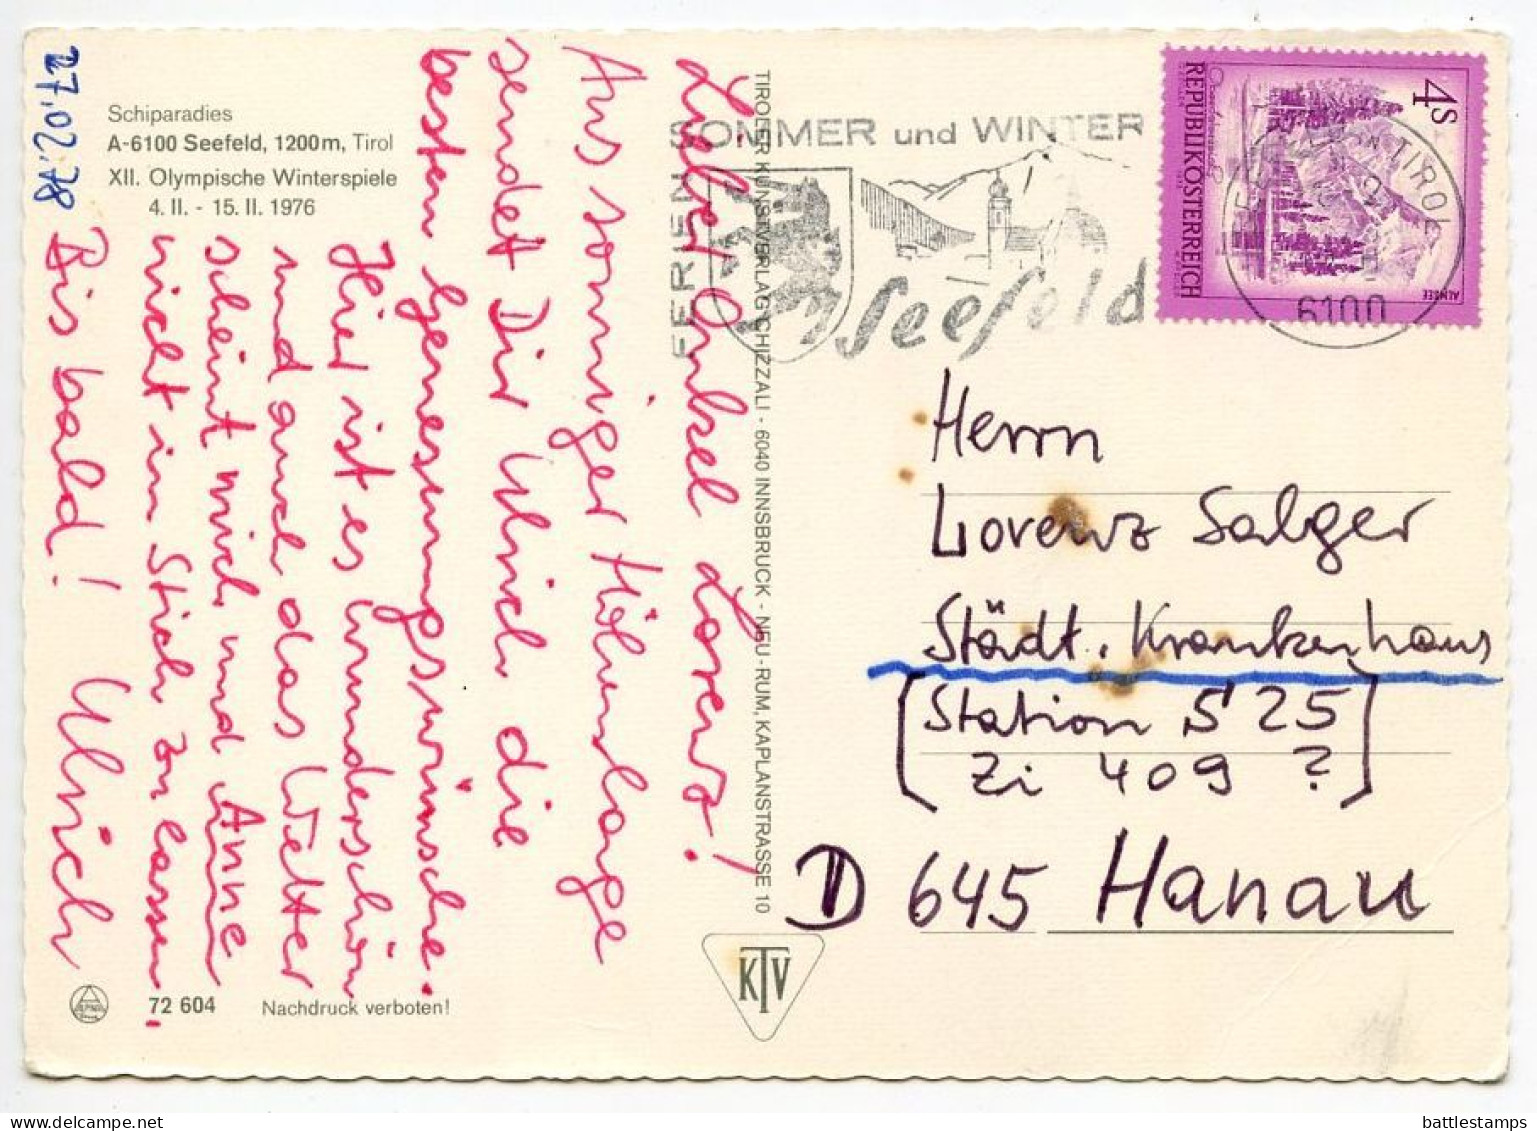 Schiparadies
A-6100 Seefeld, 1200m, Tirol
XII. Olympische Winterspiele
4. II. - 15. II. 1976
27.02.78
Lieber Onkel Lorenz!
Aus sonniger Höhenlage
sendet Dir Ulrich die
besten Genesungswünsche.
Hier ist es wunderschön
und auch das Wetter
scheint mich und Anne
nicht im Stich zu lassen.
Bis bald! Ulrich
72 604 Nachdruck verboten!
TIROLER KUNSTVERLAG CHIZZALI - 6040 INNSBRUCK - NEU-RUM, KAPLANSTRASSE 10
KTV
SOMMER und WINTER
FERIEN
Seefeld
4S
REPUBLIK ÖSTERREICH
ALMSEE
TIROL
6100
Herrn
Lorenz Salger
Städt. Krankenhaus
[Station S 25]
[Zi 409 ?]
D 645 Hanau
battlestamps